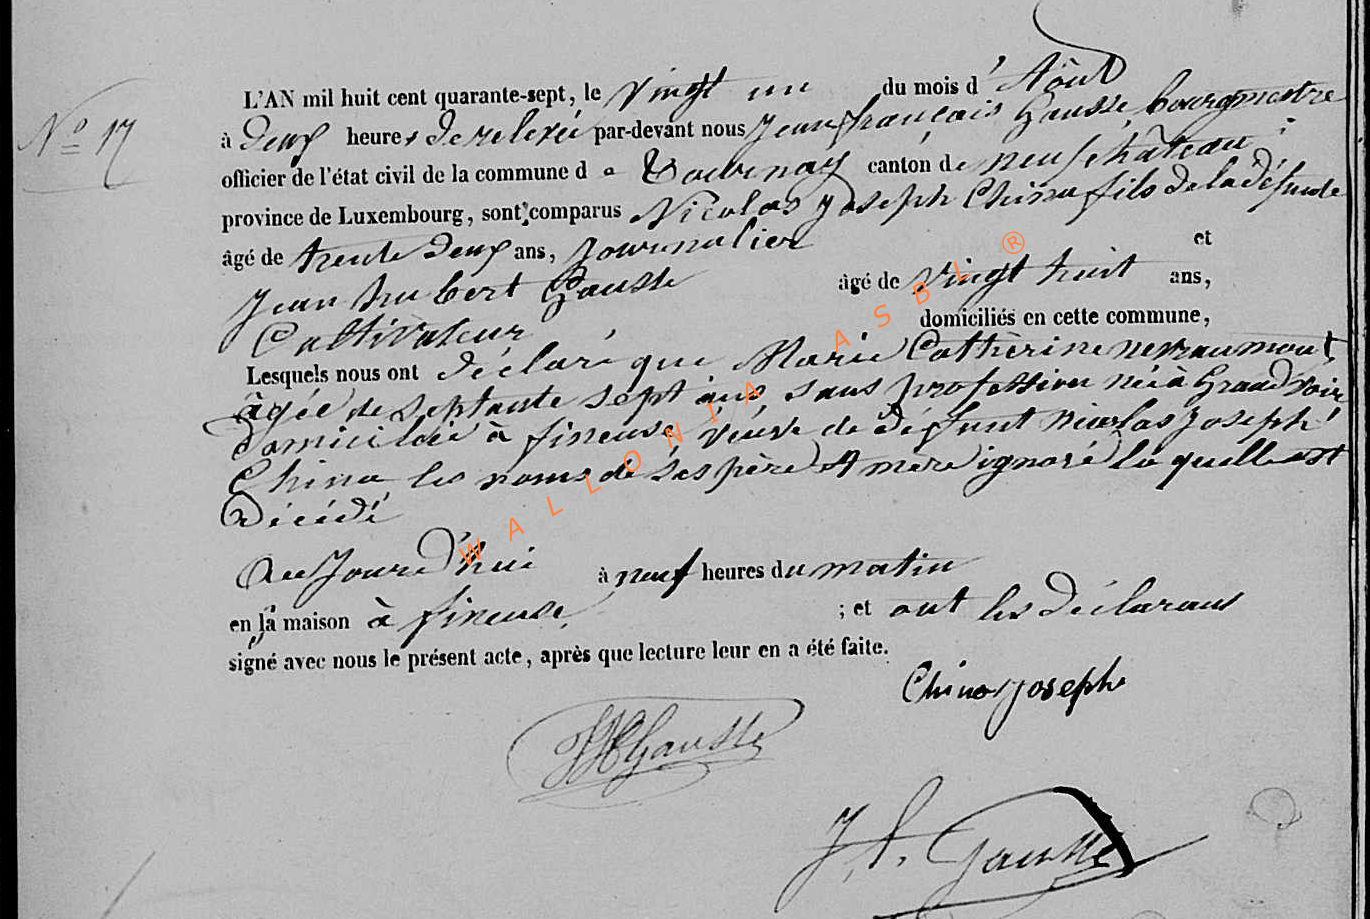 N° 17
L'AN mil huit cent quarante-sept, le vingt un du mois d'Août
à deux heures de relevée par-devant nous jean françois Gausse, bourgmestre
officier de l'état civil de la commune de Tournay canton de neufchâteau
province de Luxembourg, sont comparus Nicolas joseph China fils de la défunte
âgé de trente deux ans, journalier et
jean hubert Gausse âgé de vingt huit ans,
Cultivateur domiciliés en cette commune,
Lesquels nous ont déclaré que Marie Cathèrine neuraumont
âgée de septante sept ans sans profession née à Grandvoir
domiciliée à fineuse veuve de défunt nicolas joseph
China les noms de ses père et mère ignoré la quelle est
décédé
Aujourd'hui à neuf heures du matin
en la maison à fineuse ; et ont les déclarans
signé avec nous le présent acte, après que lecture leur en a été faite.
China joseph
JH Gausse
J. f. Gausse
WALLONIA ASBL ®